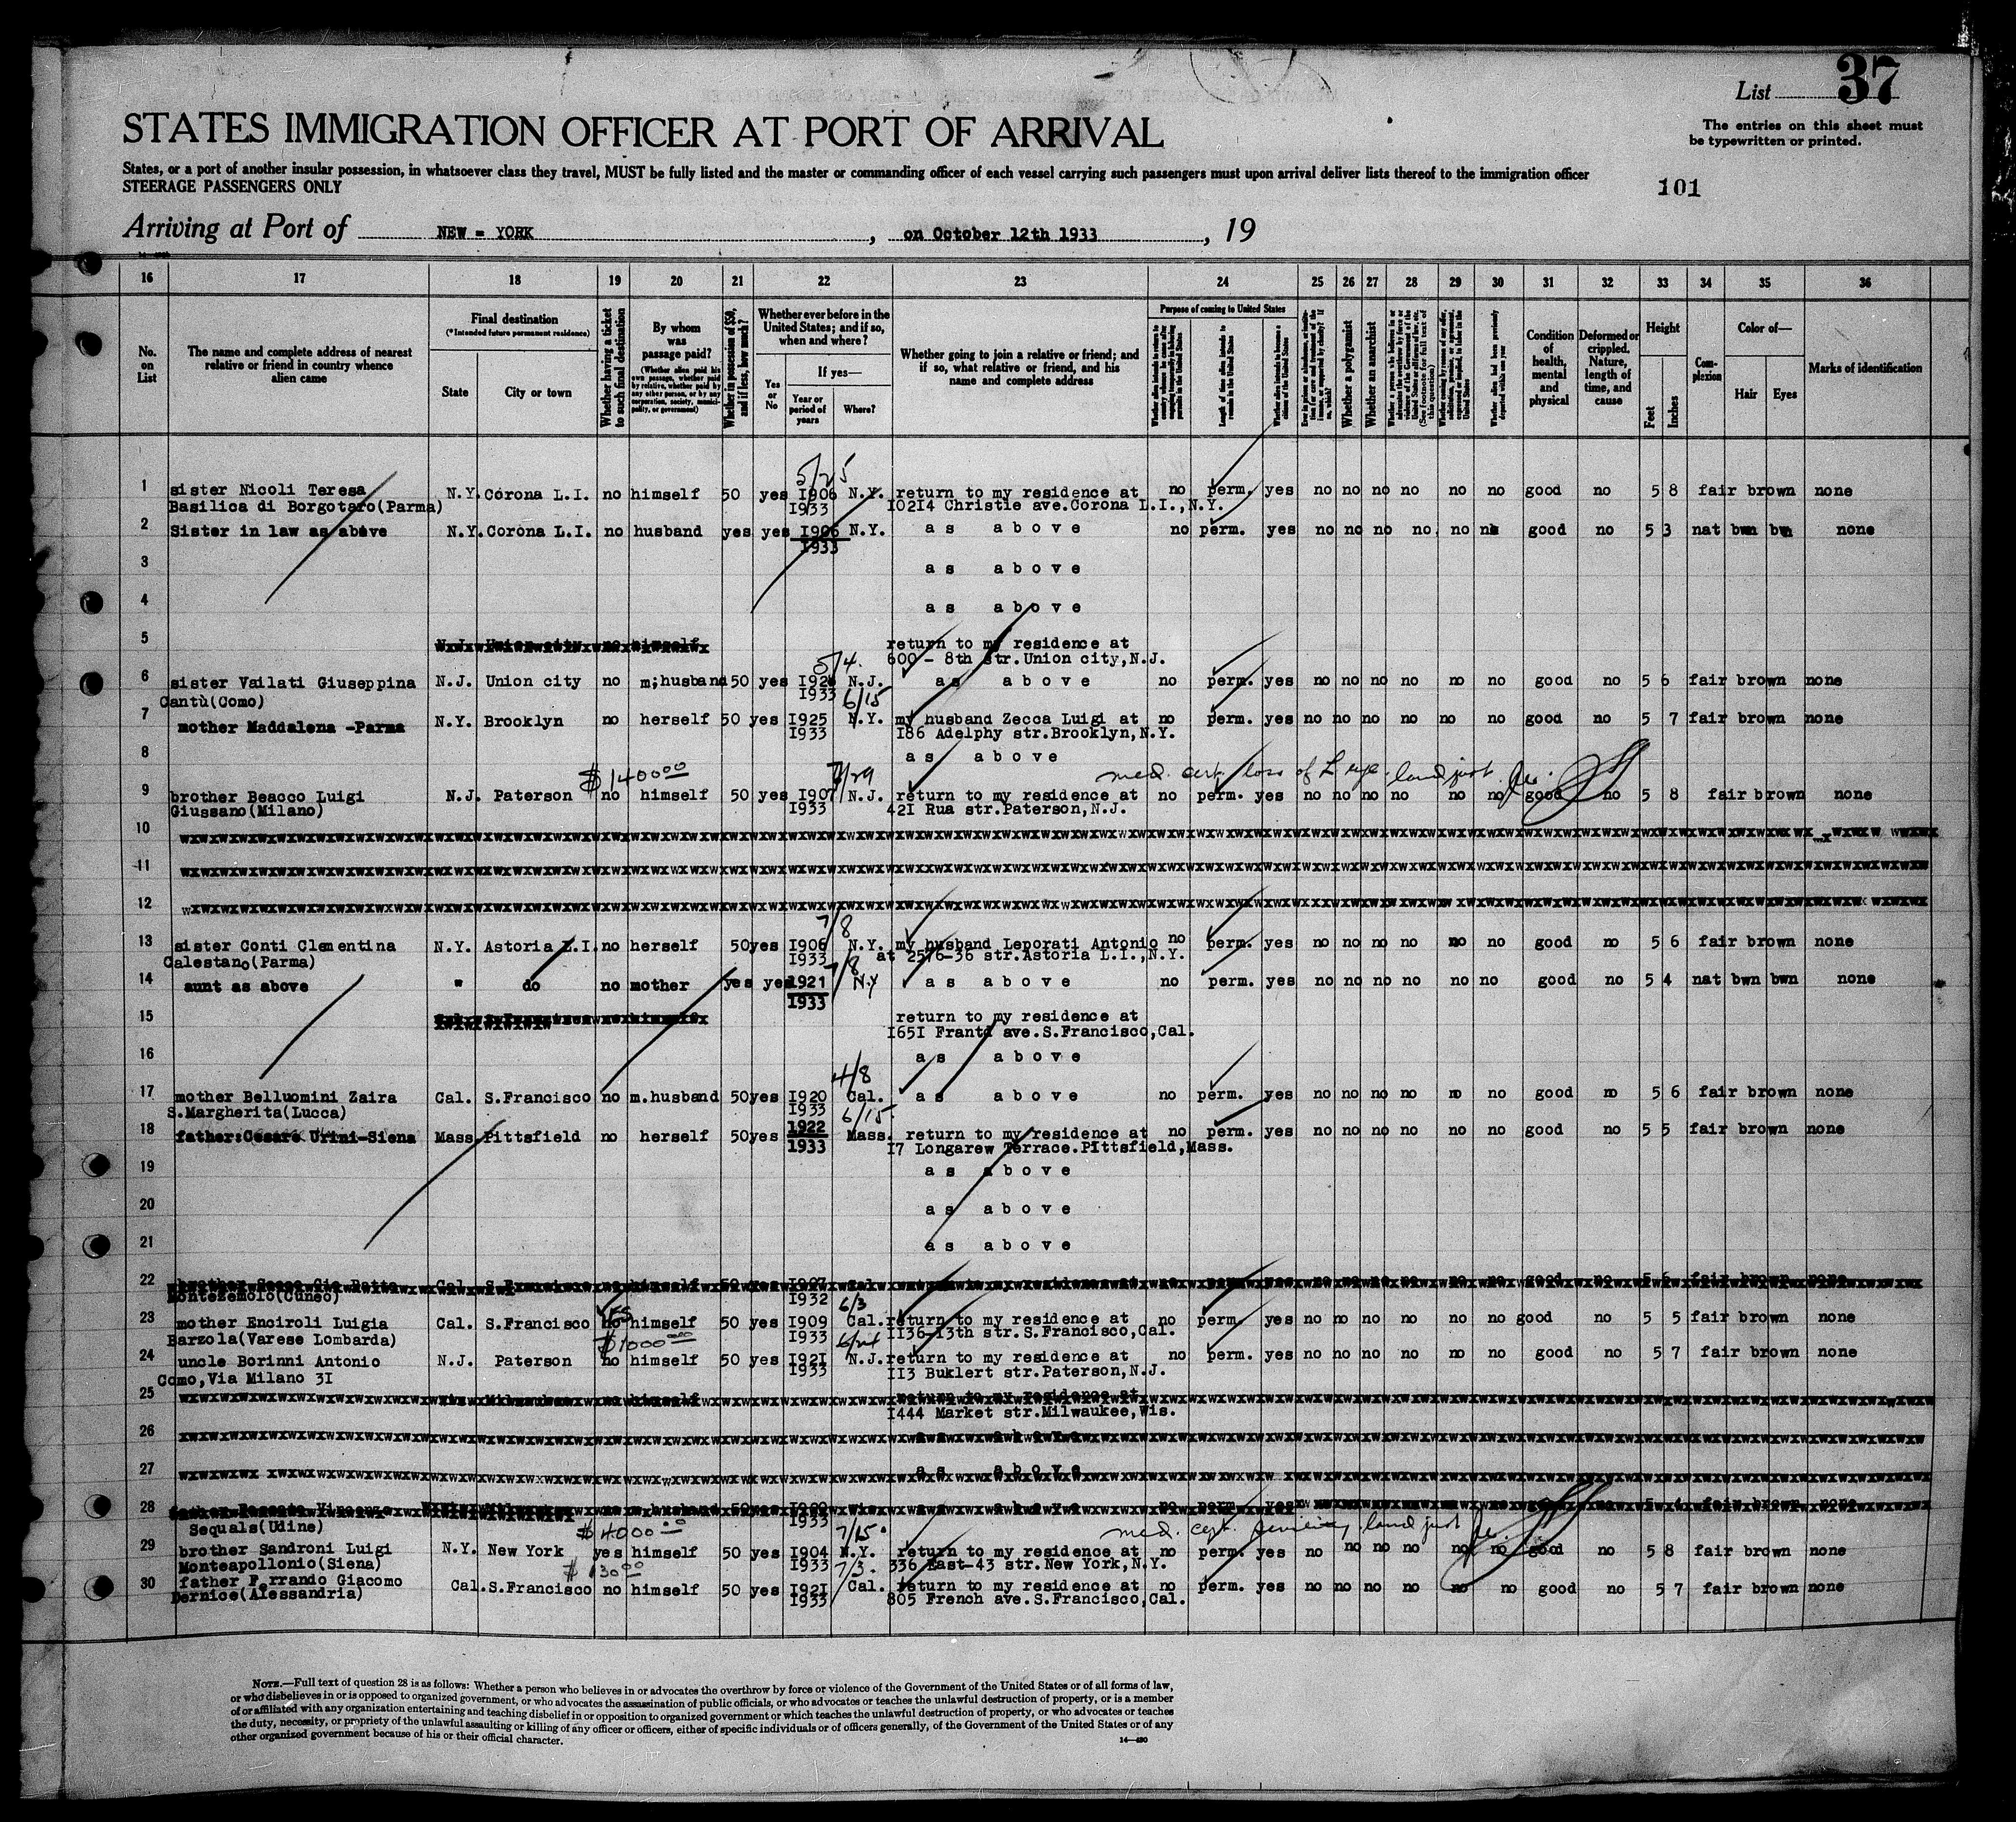 List 37
STATES IMMIGRATION OFFICER AT PORT OF ARRIVAL
The entries on this sheet must
be typewritten or printed.
States, or a port of another insular possession, in whatsoever class they travel, MUST be fully listed and the master or commanding officer of each vessel carrying such passengers must upon arrival deliver lists thereof to the immigration officer
STEERAGE PASSENGERS ONLY
101
Arriving at Port of NEW = YORK , on October 12th 1933 , 19
16 17 18 19 20 21 22 23 24 25 26 27 28 29 30 31 32 33 34 35 36
No. on List
The name and complete address of nearest relative or friend in country whence alien came
Final destination
(*Intended future permanent residence)
State
City or town
Whether having a ticket to such final destination
By whom was passage paid?
(Whether alien paid his own passage, whether paid by relative, whether paid by any other person, or by any corporation, society, municipality, or government)
Whether in possession of $50, and if less, how much?
Whether ever before in the United States; and if so, when and where?
Yes or No
If yes—
Year or period of years
Where?
Whether going to join a relative or friend; and if so, what relative or friend, and his name and complete address
Purpose of coming to United States
Length of time alien intends to remain in the United States
Whether alien intends to become a citizen of the United States
Whether a polygamist
Whether an anarchist
Condition of health, mental and physical
Deformed or crippled. Nature, length of time, and cause
Height
Feet
Inches
Complexion
Color of—
Hair
Eyes
Marks of identification
5/25
1 sister Nicoli Teresa N.Y. Corona L.I. no himself 50 yes I906 N.Y. return to my residence at no perm. yes no no no no no no good no 5 8 fair brown none
Basilica di Borgotaro(Parma) I933 I02I4 Christie ave.Corona L.I.,N.Y.
2 Sister in law as above N.Y. Corona L.I. no husband yes yes I906 N.Y. as above no perm. yes no no no no. no no good no 5 3 nat bwn bwn none
I933
3 as above
4 as above
5 N.J. Union city no himself return to my residence at
600 - 8th str.Union city,N.J.
5/4.
6 sister Vailati Giuseppina N.J. Union city no m;husband 50 yes I926 N.J. as above no perm. yes no no no no no no good no 5 6 fair brown none
Cantù(Como) I933 6/15
7 mother Maddalena -Parma N.Y. Brooklyn no herself 50 yes I925 N.Y. my husband Zecca Luigi at no perm. yes no no no no no no good no 5 7 fair brown none
I933 I86 Adelphy str.Brooklyn,N.Y.
8 as above
$14000 7/29 med. cert. loss of L eye. land just
9 brother Beacco Luigi N.J. Paterson no himself 50 yes I907 N.J. return to my residence at no perm. yes no no no no no no good no 5 8 fair brown none
Giussano(Milano) I933 42I Rua str.Paterson,N.J.
10
11
12
7/8
13 sister Conti Clementina N.Y. Astoria L.I. no herself 50 yes I906 N.Y. my husband Leporati Antonio no perm. yes no no no no no no good no 5 6 fair brown none
Calestano(Parma) I933 7/8 at 2576-36 str.Astoria L.I.,N.Y.
14 aunt as above " do no mother yes yes 1921 N.Y as above no perm. yes no no no no no no good no 5 4 nat bwn bwn none
1933
15 return to my residence at
I65I Frantd ave.S.Francisco,Cal.
16 as above
4/8
17 mother Belluomini Zaira Cal. S.Francisco no m.husband 50 yes I920 Cal. as above no perm. yes no no no no no no good no 5 6 fair brown none
S.Margherita(Lucca) I933 6/15
18 father:Cesare Urini-Siena Mass Pittsfield no herself 50 yes 1922 Mass. return to my residence at no perm. yes no no no no no no good no 5 5 fair brown none
1933 I7 Longarew Terrace.Pittsfield,Mass.
19 as above
20 as above
21 as above
22 brother Secco Gio Batta Cal. S.Francisco no himself 50 yes I907 Cal. return to my residence at no perm. yes no no no no no no good no 5 6 fair brown none
Montezemolo(Cuneo) I932 6/3
yes
23 mother Enciroli Luigia Cal. S.Francisco no himself 50 yes I909 Cal. return to my residence at no perm. yes no no no no no no good no 5 5 fair brown none
Barzola(Varese Lombarda) $1000 I933 6/24 II36-I3th str.S.Francisco,Cal.
24 uncle Borinni Antonio N.J. Paterson no himself 50 yes I92I N.J. return to my residence at no perm. yes no no no no no no good no 5 7 fair brown none
Como,Via Milano 3I I933 II3 Buklert str.Paterson,N.J.
25 Wis Milwaukee no himself return to my residence at
I444 Market str.Milwaukee,Wis.
26 as above
27 as above
28 no m husband 50 yes Wis as above no perm. yes good no fair brown none
Sequals(Udine) $4000 I933 7/15. med. cert. senility land just
29 brother Sandroni Luigi N.Y. New York yes himself 50 yes I904 N.Y. return to my residence at no perm. yes no no no no no no good no 5 8 fair brown none
Monteapollonio(Siena) $130 I933 7/3. 336 East-43 str.New York,N.Y.
30 father Ferrando Giacomo Cal. S.Francisco no himself 50 yes I92I Cal. return to my residence at no perm. yes no no no no no no good no 5 7 fair brown none
Dernice(Alessandria) I933 805 French ave.S.Francisco,Cal.
NOTE.—Full text of question 28 is as follows: Whether a person who believes in or advocates the overthrow by force or violence of the Government of the United States or of all forms of law,
or who disbelieves in or is opposed to organized government, or who advocates the assassination of public officials, or who advocates or teaches the unlawful destruction of property, or is a member
of or affiliated with any organization entertaining and teaching disbelief in or opposition to organized government or which teaches the unlawful destruction of property, or who advocates or teaches
the duty, necessity, or propriety of the unlawful assaulting or killing of any officer or officers, either of specific individuals or of officers generally, of the Government of the United States or of any
other organized government because of his or their official character.
14—480